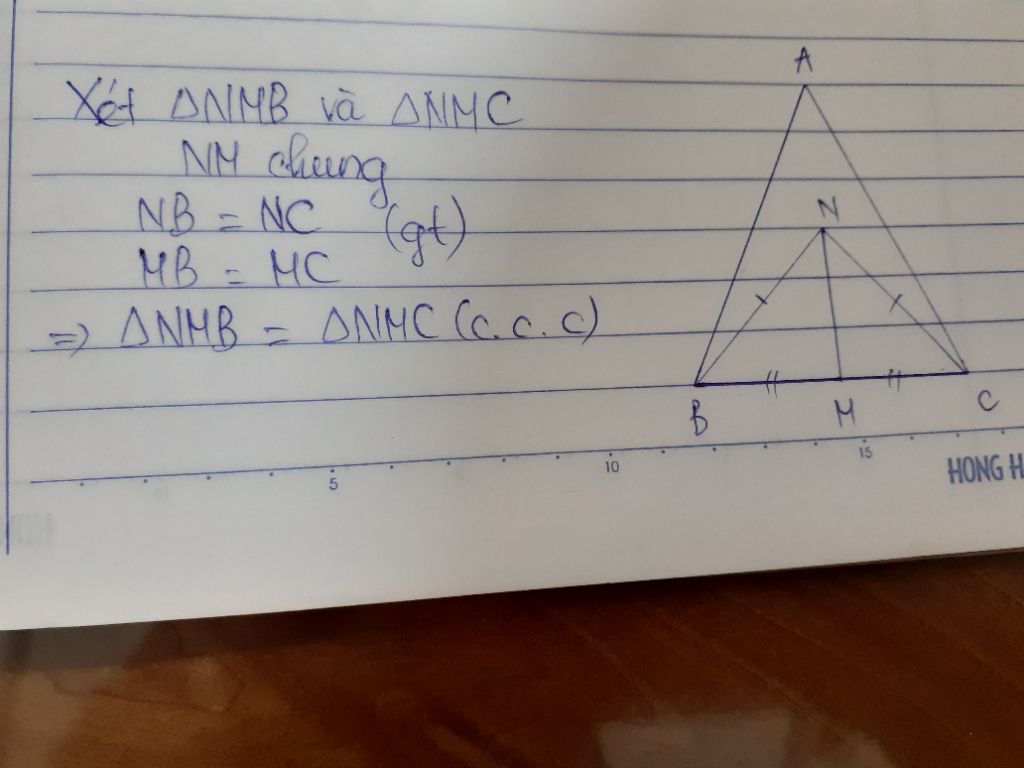 Xét ΔNMB và ΔNMC
NM chung
NB = NC (gt)
MB = MC
=> ΔNMB = ΔNMC (c.c.c)
A
N
B
M
C
5
10
15
HONG H